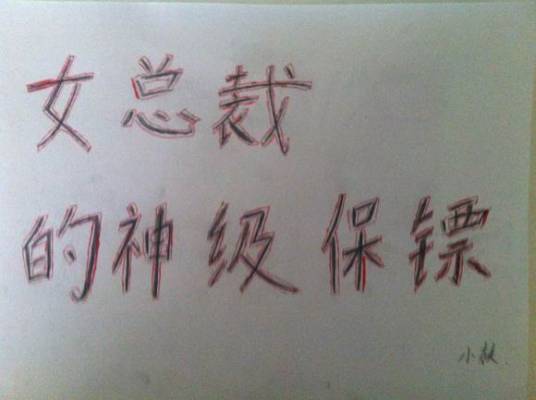 女总裁
的神级保镖
小